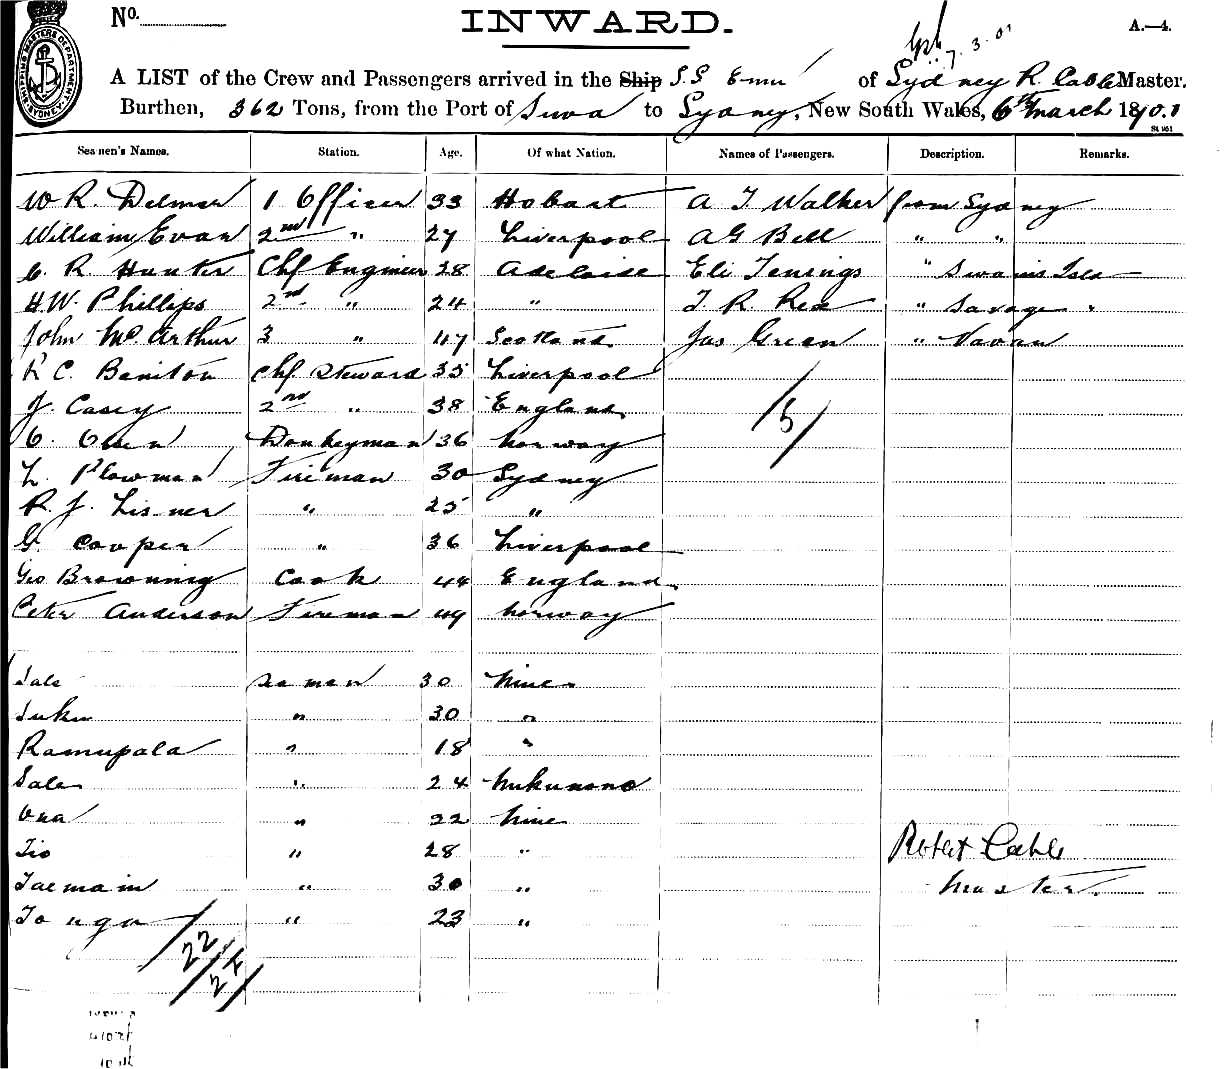 No.
INWARD.
A.—4.
7.3.01
A LIST of the Crew and Passengers arrived in the Ship S.S Emu of Sydney R. Cable Master.
Burthen, 362 Tons, from the Port of Suva to Sydney, New South Wales, 6th March 1890.1
Seamen's Names. Station. Age. Of what Nation. Names of Passengers. Description. Remarks.
W R. Delmer 1 Officer 33 Hobart A T Walker from Sydney
William Evan 2nd " 27 Liverpool A G Bell " "
C. R Hunter Chf Engineer 28 Adelaide Eli Jenings " Swains Isld
H.W. Phillips 2nd " 24 " T. R. Rex " Savage "
John McArthur 3 " 47 Scotland Jas Green " Vavau
R C. Beniton Chf Steward 35 Liverpool
J. Casey 2nd " 38 England
C. Olsen Donkeyman 36 Norway
L. Plowman Fireman 30 Sydney
R. J. Lisner " 25 "
G. Cooper " 36 Liverpool
Geo Browning Cook 44 England
Peter Anderson Fireman 49 Norway
5
Sale Seaman 30 Niue
Suku " 30 "
Ramupala " 18 "
Sale " 24 Nukunono
Una " 22 Niue
Tio " 28 "
Taemain " 30 "
Tonga " 23 "
Robert Cable
Master.
22
24